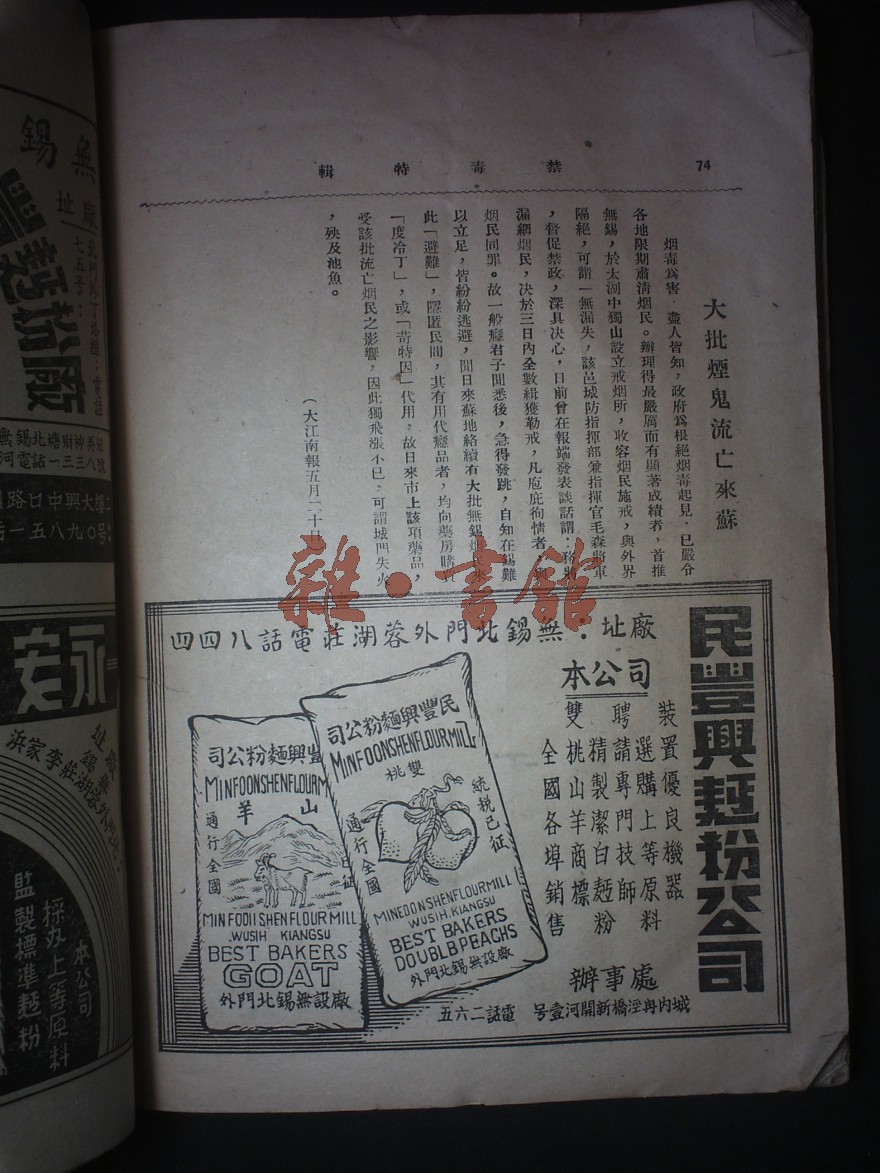 74
禁毒特輯
大批煙鬼流亡來蘇
烟毒爲害，盡人皆知，政府爲根絕烟毒起見，已嚴令
各地限期肅清烟民。辦理得最嚴厲而有顯著成績者，首推
無錫，於太湖中獨山設立戒烟所，收容烟民施戒，與外界
隔絕，可謂一無漏失，該邑城防指揮部兼指揮官毛森將軍
，督促禁政，深具决心，日前曾在報端發表談話謂：務將
漏網烟民，决於三日內全數緝獲勒戒，凡庖庇徇情者，與
烟民同罪。故一般癮君子聞悉後，急得發跳，自知在錫難
以立足，皆紛紛逃避，聞日來蘇地絡續有大批無錫烟民來
此「避難」，隱匿民間，其有用代癮品者，均向藥房購
「度冷丁」，或「苛特因」代用，故日來市上該項藥品，
受該批流亡烟民之影響，因此獨飛漲不已，可謂城門失火
，殃及池魚。
（大江南報五月二十日）
雜·書館
民豐興麵粉公司
廠址：無錫北門外蓉湖莊電話八四四
本公司
裝置優良機器
選購上等原料
聘請專門技師
精製潔白麵粉
雙桃山羊商標
全國各埠銷售
辦事處
城內冉涇橋新開河壹号 電話二六五
民豐興麵粉公司
MINFOONSHENFLOURMILL
雙桃
統税已征
通行全國
MINEOONSHENFLOURMILL
WUSIH.KIANGSU
BEST BAKERS
DOUBLBPEACHS
廠設無錫北門外
豐興麵粉公司
MINFOONSHENFLOURM
山羊
已征
通行全國
MINFOOII SHEN FLOUR MILL
WUSIH KIANGSU
BEST BAKERS
GOAT
廠設無錫北門外
無錫
廠址
豐麵粉廠
河電話一三三八號
永安
廠址
無錫
蓉湖莊李家浜
本公司
採办上等原料
監製標準麵粉